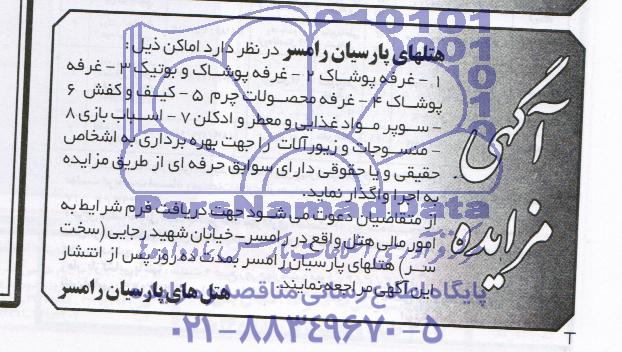 آگهی مزایده
هتلهای پارسیان رامسر در نظر دارد اماکن ذیل:
۱ - غرفه پوشاک ۲ - غرفه پوشاک و بوتیک ۳ - غرفه
پوشاک ۴ - غرفه محصولات چرم ۵ - کیف و کفش ۶
- سوپر مواد غذایی و معطر و ادکلن ۷ - اسباب بازی ۸
- منسوجات و زیورآلات را جهت بهره برداری به اشخاص
حقیقی و یا حقوقی دارای سوابق حرفه ای از طریق مزایده
به اجرا واگذار نماید.
از متقاضیان دعوت می شود جهت دریافت فرم شرایط به
امور مالی هتل واقع در رامسر - خیابان شهید رجایی (سخت
سر) هتلهای پارسیان رامسر بمدت ده روز پس از انتشار
این آگهی مراجعه نمایند.
هتل های پارسیان رامسر
010101
001
10
1
ParsNamadData
پایگاه اطلاع رسانی مناقصه و مزایده
۰۲۱-۸۸۳۴۹۶۷۰-۵
T